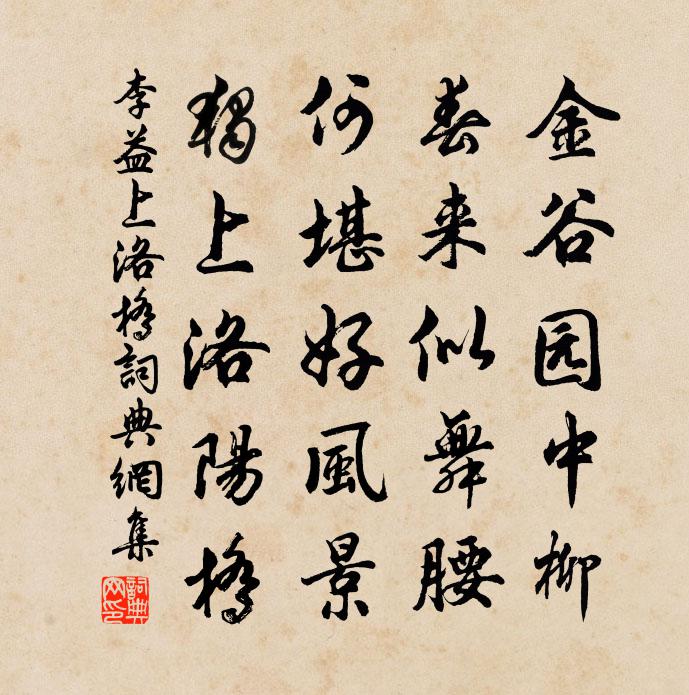 金谷园中柳
春来似舞腰
何堪好風景
獨上洛陽橋
李益上洛橋詞典網集
詞典網印